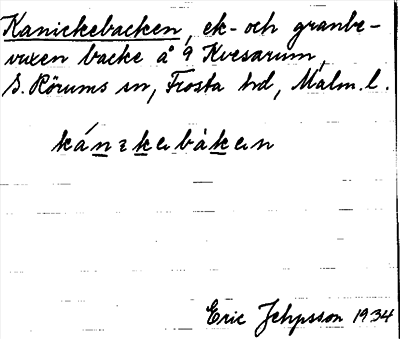 Kanickebacken, ek- och granbe-
vuxen backe å 9 Kvesarum,
S. Rörums sn, Frosta hd, Malm. l.
Eric Jehpsson 1934